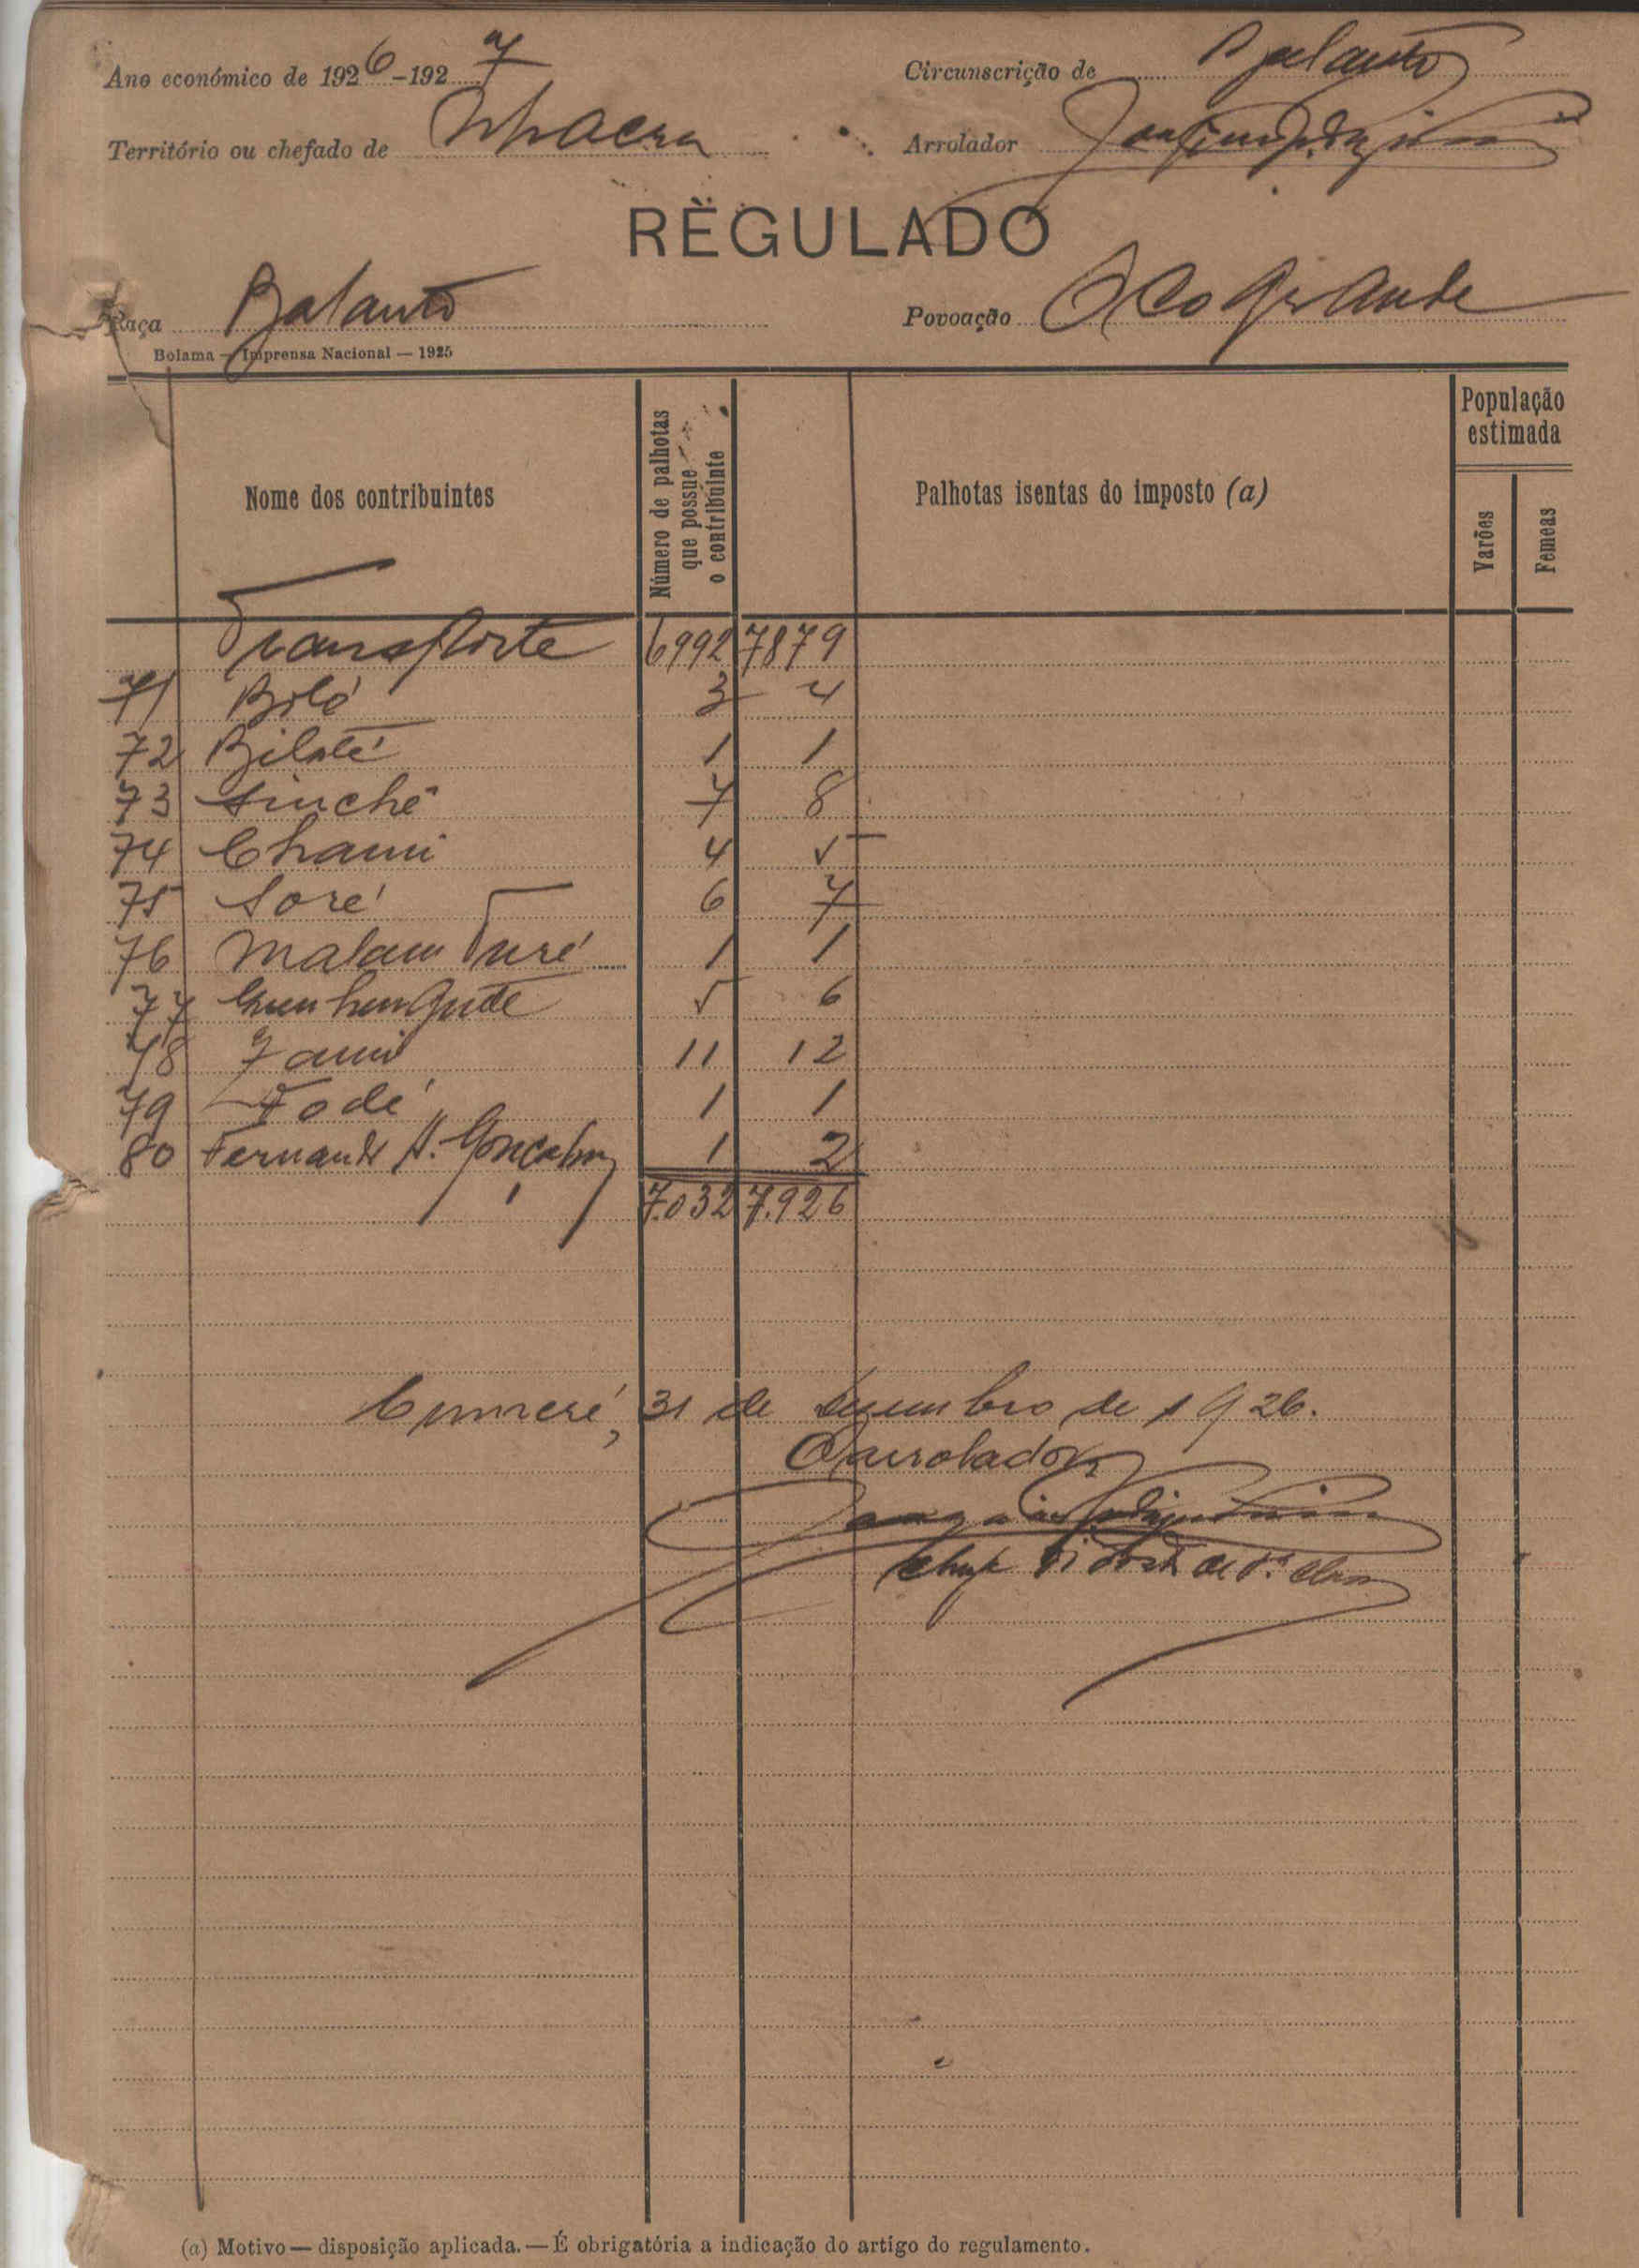 Ano económico de 1926-1927 Circunscrição de Balanta
Território ou chefado de Nhacra Arrolador
REGULADO
Raça Balanta Povoação Oco Grande
Bolama — Imprensa Nacional — 1925
Nome dos contribuintes
Número de palhotas que possue o contribuinte
Palhotas isentas do imposto (a)
População estimada
Varões
Femeas
Transporte 6992 7879
71 3 4
72 Bilaté 1 1
73 Sinchê 7 8
74 Chami 4 5
75 Soré 6 7
76 Malam Turé 1 1
77 5 6
78 11 12
79 Fodé 1 1
80 Fernando A. Gonçalves 1 2
7.032 7.926
31 de Dezembro de 1926.
O arrolador
Chefe de Posto de 1.ª classe
(a) Motivo — disposição aplicada. — É obrigatória a indicação do artigo do regulamento.